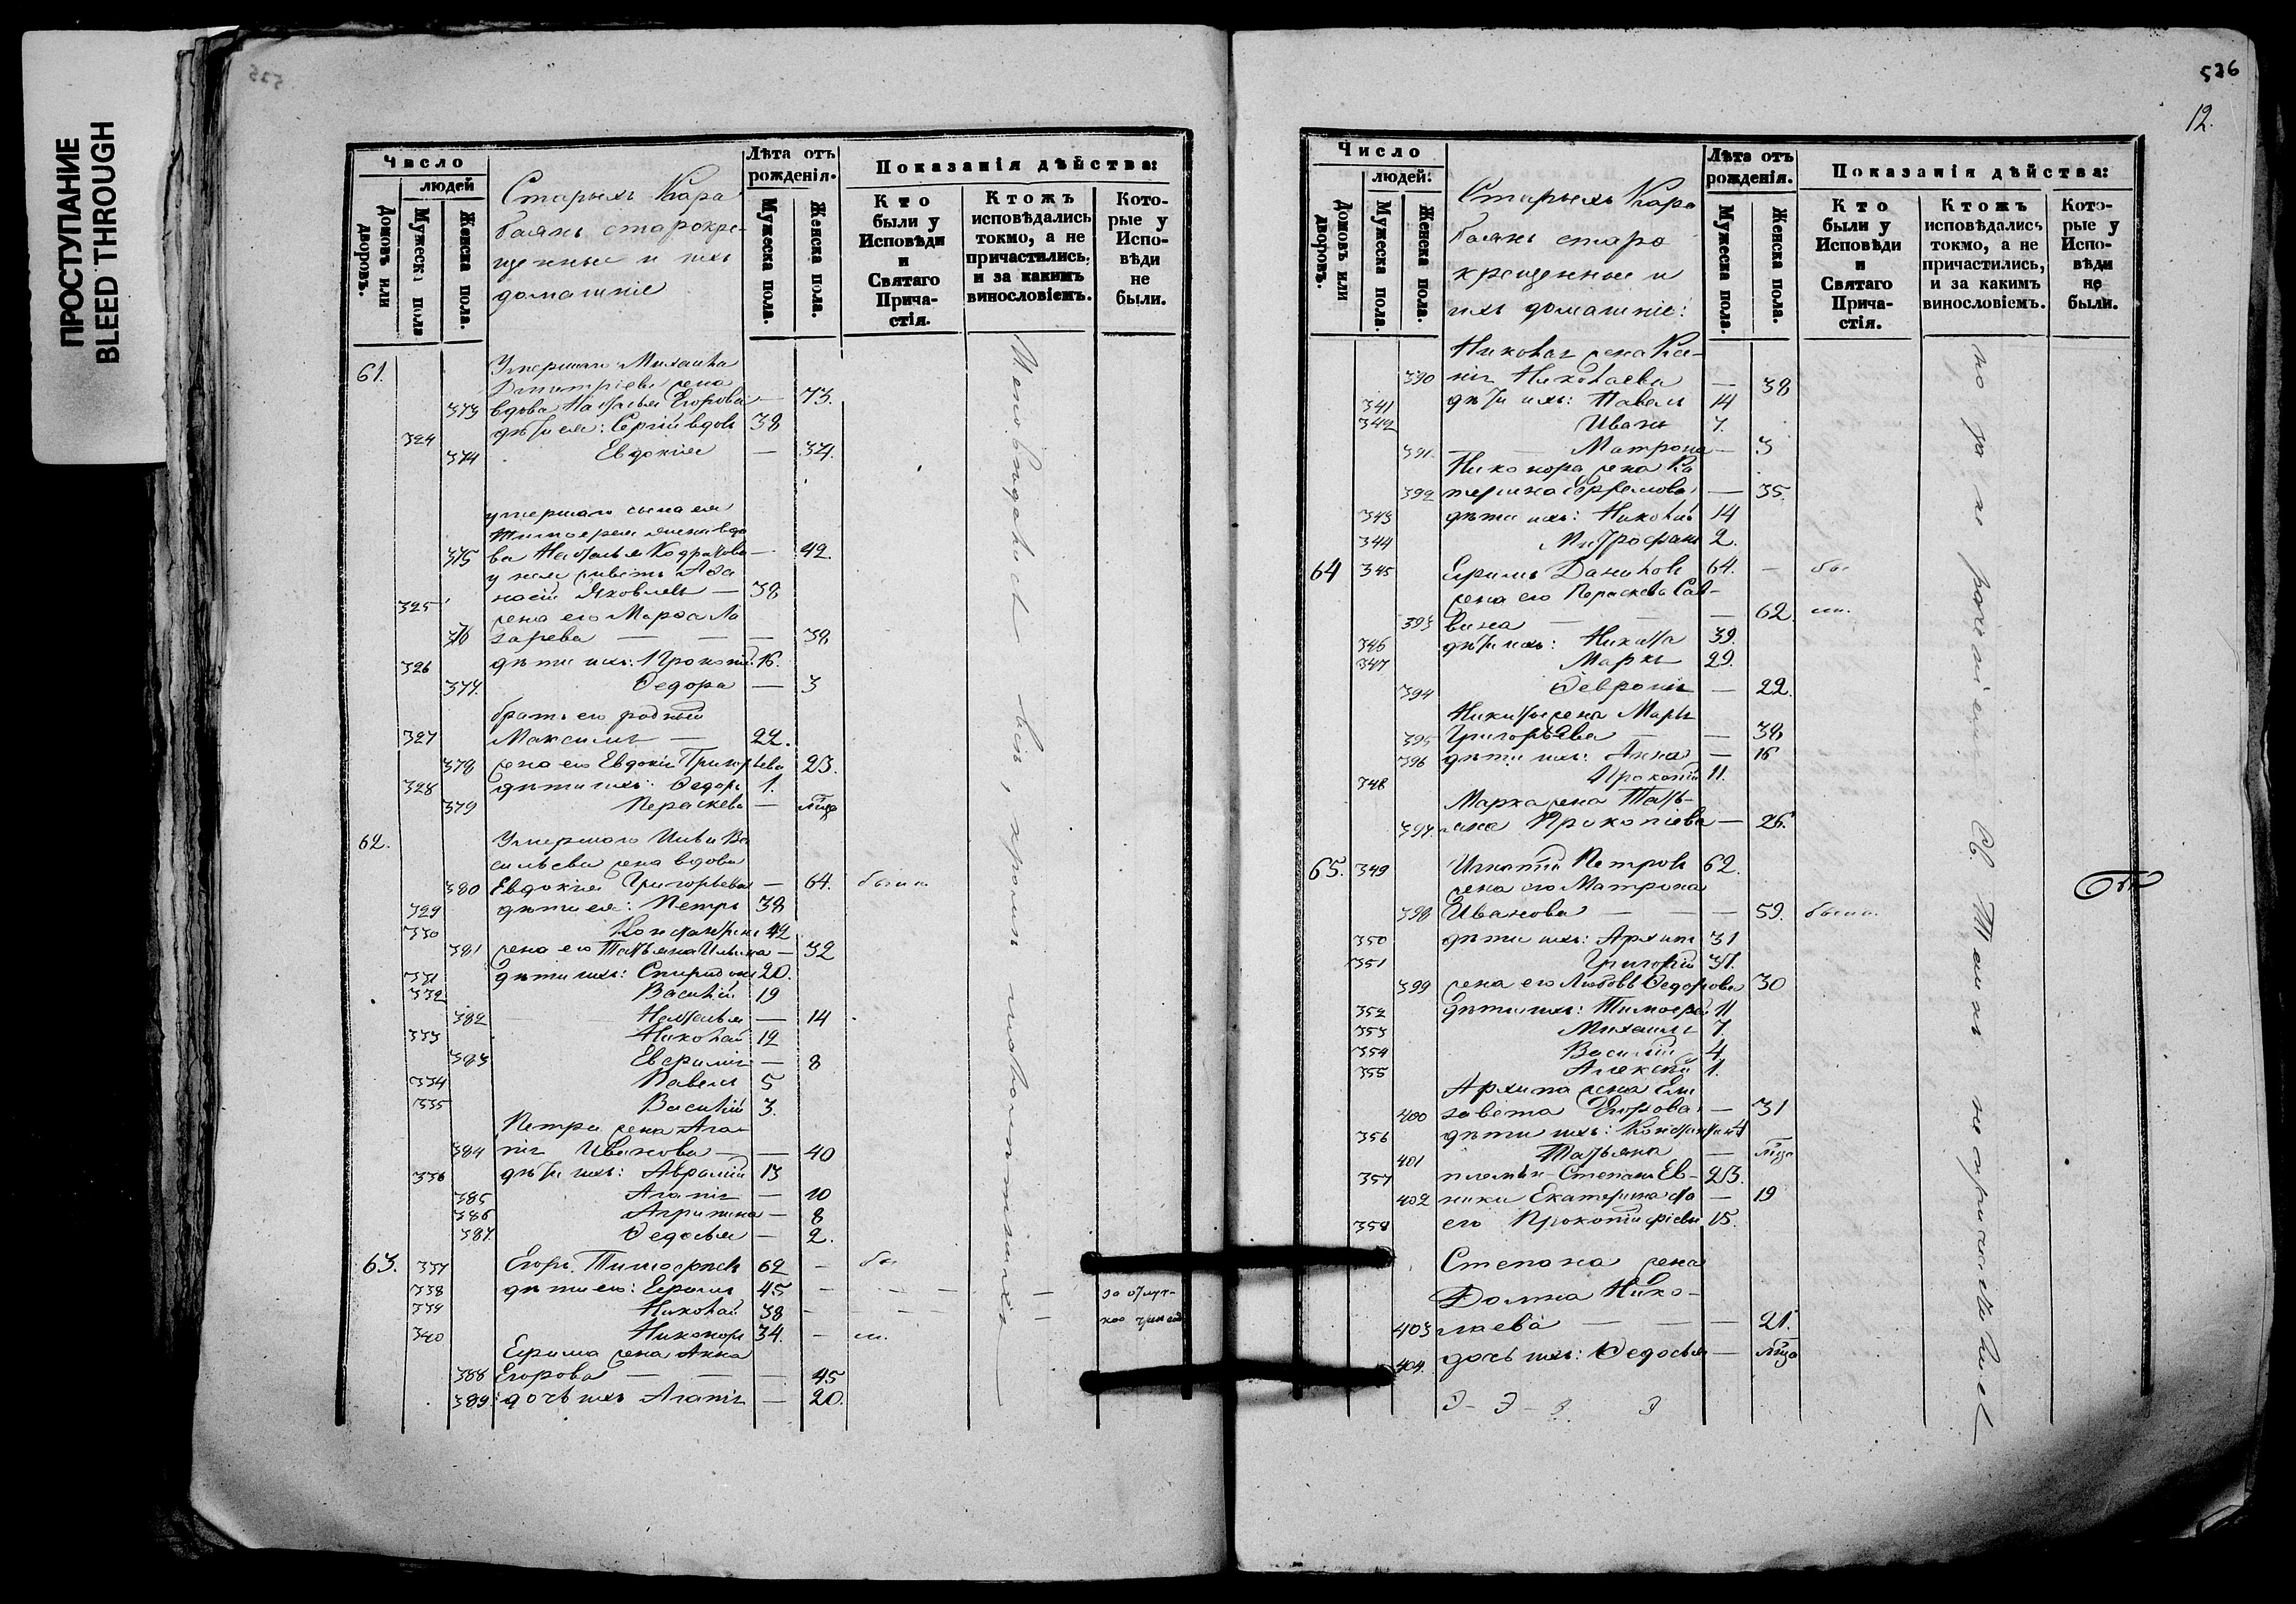 ПРОСТУПАНИЕ
BLEED THROUGH
Число
людей
Домовъ или дворовъ.
Мужеска пола
Женска пола.
Старыхъ Кара
баянъ старокре-
щенные и ихъ
домашніе
Лѣта отъ рожденія.
Мужеска пола.
Женска пола.
Показанія дѣйства:
Кто были у Исповѣди и Святаго Прича-стія.
Ктожъ исповѣдались токмо, а не причастились, и за какимъ винословіемъ.
Кото-рые у Испо-вѣди не были.
61.
Умершаго Михаила
Дмитріева жена
373 вдова Наталья Егорова — 73.
324 дѣти ея: Сергій вдовъ 38
374 Евдокія — 34.
умершаго сына ея
Тимофея жена вдо
375 ва Наталья — 42.
у нея живетъ Афа
325 насій Яковлевъ — 38
жена его Марфа Ла
376 зарева — — — 38
326 дѣти ихъ: Прокопій 16.
377. Федора — 3
братъ его родный
327 Максимъ — 22.
378 жена его Евдокія Григорьева 23.
328 дѣти ихъ: Федоръ 1.
379 Параскева —
62.
Умершаго Ильи Ва
сильева жена вдова
380 Евдокія Григорьева — 64. были
329 дѣти ея: Петръ 38
330 Константинъ 42
381 жена его Татьяна Ильина — 32
331 дѣти ихъ: Спиридонъ 20.
332 Василій 19
382 Наталья — 14
333 Николай 12
383 Евфимія — 8
334 Павелъ 5
335 Василій 3.
Петра жена Ага-
384 пія Иванова — — 40
336 дѣти ихъ: Аврамій 13
385 Агапія — 10
386 Агрипина — 8
387. Федосья — 2.
63. 337 Егоръ Тимофеевъ 62 — бы
338 дѣти его: Ефимъ 45 —
339 Николай 38 —
340 Никоноръ 34. — ли.
Ефима жена Анна
388 Егорова — — — 45
389. дочь ихъ Агапія — 20.
526
12.
Число
людей:
Домовъ или дворовъ.
Мужеска пола.
Женска пола.
Старыхъ Кара
баянъ старо
крещенные и
ихъ домашніе:
Лѣта отъ рожденія.
Мужеска пола.
Женска пола.
Показанія дѣйства:
Кто были у Исповѣди и Святаго Прича-стія.
Ктожъ исповѣдались токмо, а не причастились, и за какимъ винословіемъ.
Кото-рые у Испо-вѣди не были.
Николая жена Ксе-
390 нія Николаева — 38
341 дѣти ихъ: Павелъ 14
342 Иванъ 7.
391. Матрона — 3
Никонора жена Ка
392 терина Ефремова — 35.
343 дѣти ихъ: Николай 14
344 Митрофанъ 2.
64 345 Ефимъ Даниловъ 64. — бы
жена его Параскева Сав-
393 вина — — — 62. ли.
346 дѣти ихъ: Никита 39.
347 Маркъ 29.
394 Февронія — 22.
Никиты жена Марья
395 Григорьева — — 38
396 дѣти ихъ: Анна — 16
348 Прокопій 11.
Марка жена Тать-
397. яна Прокопіева — 26.
65. 349 Игнатій Петровъ 62.
жена его Матрона
398 Иванова — — — 59. были.
350 дѣти ихъ: Архипъ 31
351 Григорій 31.
399 жена его Любовь Федорова 30
352 дѣти ихъ: Тимофей 11
353 Михаилъ 7.
354 Василій 4.
355 Алексій 1.
Архипа жена Ели
400 завета Егорова — 31
356 дѣти ихъ: Константинъ
401 Татьяна —
357 племян- Степанъ Ев- 23.
402 ники Екатерина — 19
358 его Прокопій 15.
Степана жена
Домна Нико-
403 лаева — — — 21.
404. дочь ихъ: Федосья —